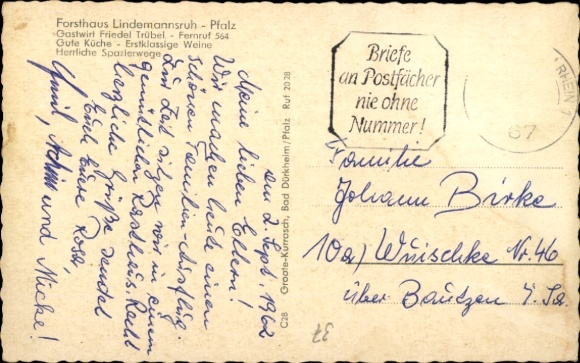 Forsthaus Lindemannsruh - Pfalz
Gastwirt Friedel Trübel - Fernruf 564
Gute Küche - Erstklassige Weine
Herrliche Spazierwege
am 2. Sept. 1962
Meine lieben Eltern!
Wir machen heute einen
schönen Familien-Ausflug.
Zur Zeit sitzen wir in einem
gemütlichen Rasthaus. Recht
herzliche Grüße sendet
Euch Eure Rosa,
Emil, Achim und Mucke!
C28 Groote-Kurrasch, Bad Dürkheim/Pfalz Ruf 2028
Briefe
an Postfächer
nie ohne
Nummer!
RHEIN 1
67
Familie
Johann Birke
10a) Wuischke Nr. 46
über Bautzen i. Sa.
37